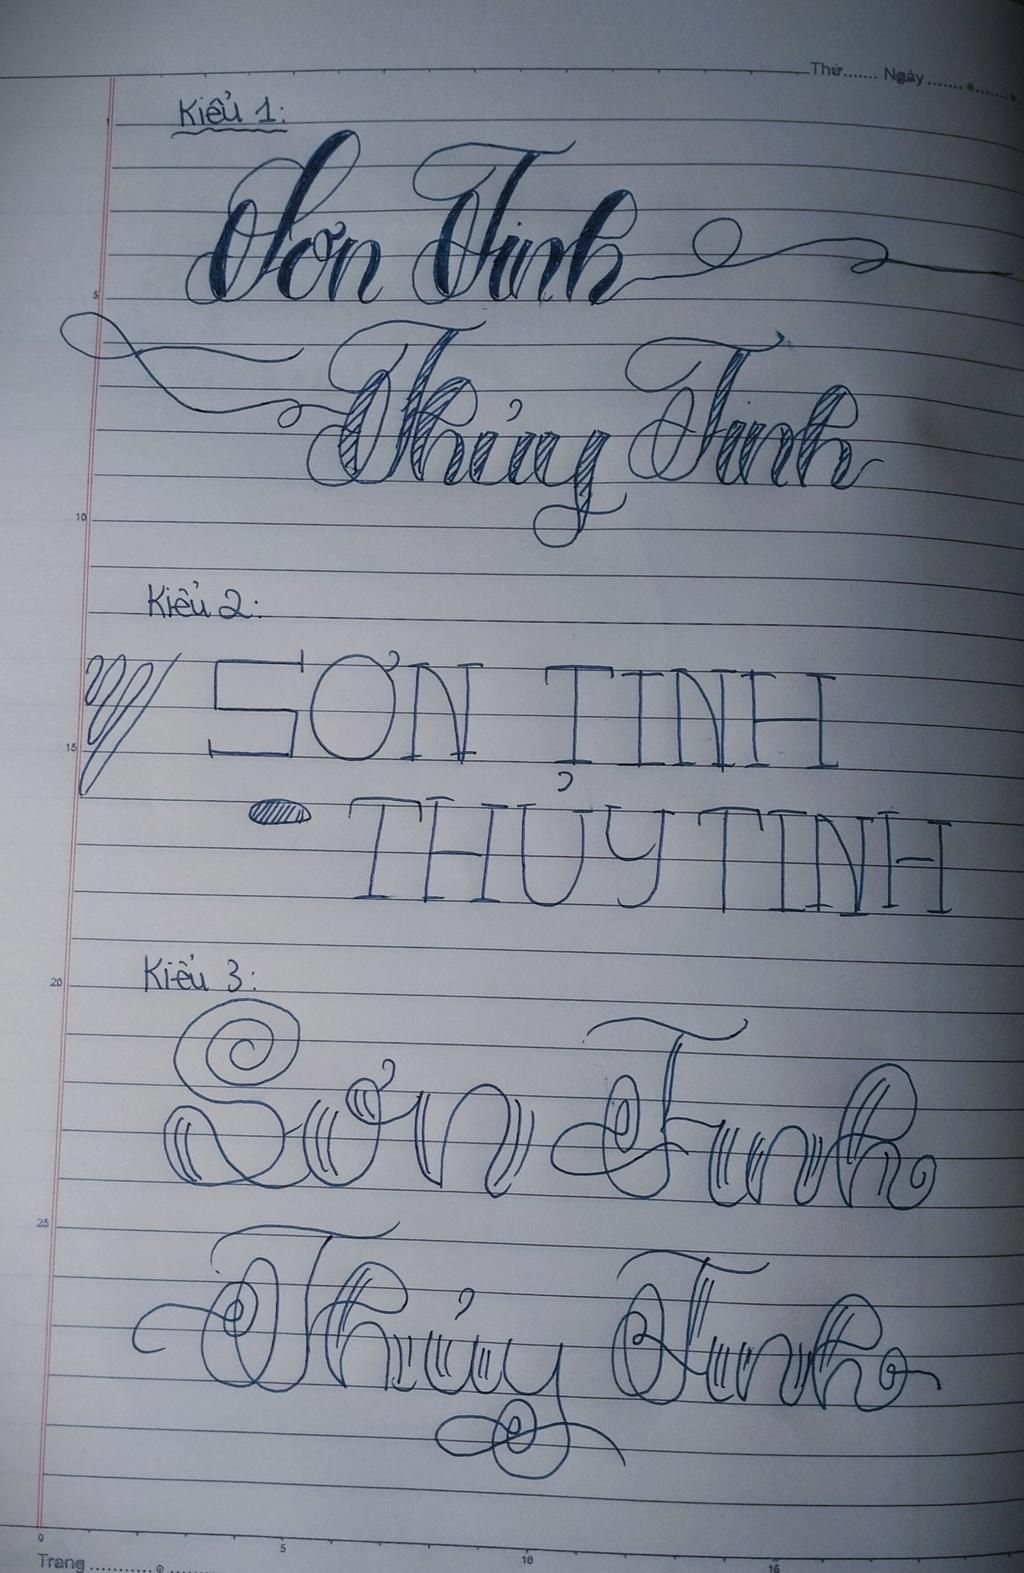 Thứ....... Ngày
Kiểu 1:
Sơn Tinh
Thủy Tinh
Kiểu 2:
SƠN TINH
THỦY TINH
Kiểu 3:
Sơn Tinh
Thủy Tinh
5
10
15
20
25
0 5 10 15
Trang